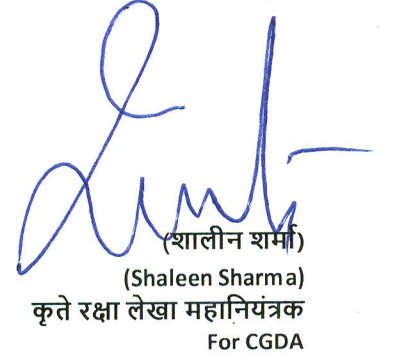 (शालीन शर्मा)
(Shaleen Sharma)
कृते रक्षा लेखा महानियंत्रक
For CGDA